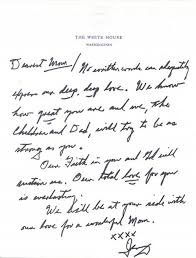 THE WHITE HOUSE
WASHINGTON
Dearest Mom,
No written words can adequately
express our deep, deep love. We know
how great you are and we, the
children and Dad, will try to be as
strong as you.
Our Faith in you and God will
sustain us. Our total love for you
is everlasting.
We will be at your side with
our love for a wonderful Mom.
xxxx
Jerry